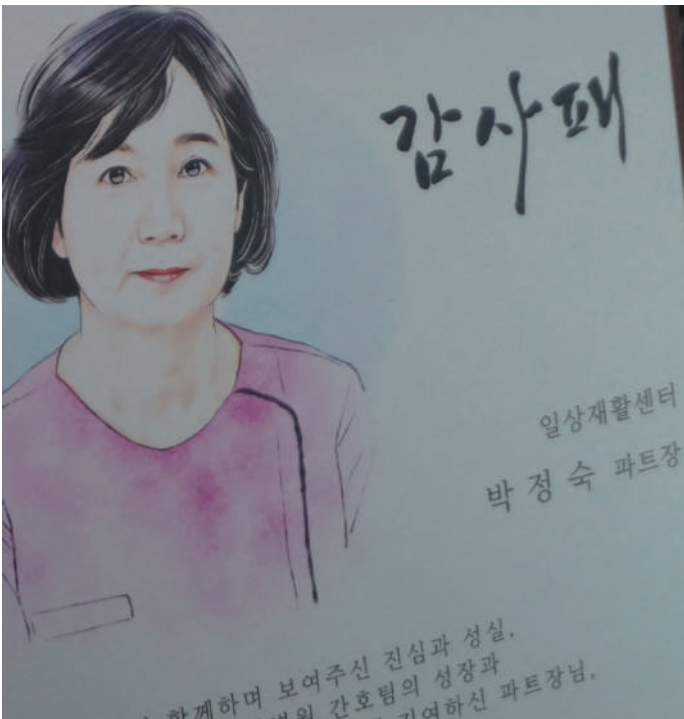 감사패
일상재활센터
박정숙 파트장
함께하며 보여주신 진심과 성실,
간호팀의 성장과
파트장님,